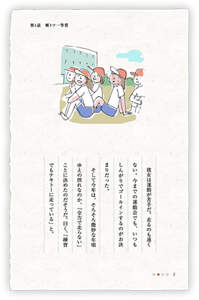 第1話　断トツ一等賞
彼女は運動が苦手だ。走るのも遅く
ない。今までの運動会でも、いつも
しんがりでゴールインするのがお決
まりだった。
そして今年は、そろそろ微妙な年頃
ゆえの照れなのか、「全力で走らない」
ことに決めたのだそうだ。曰く、「練習
でもテキトーに走っている」と。
2